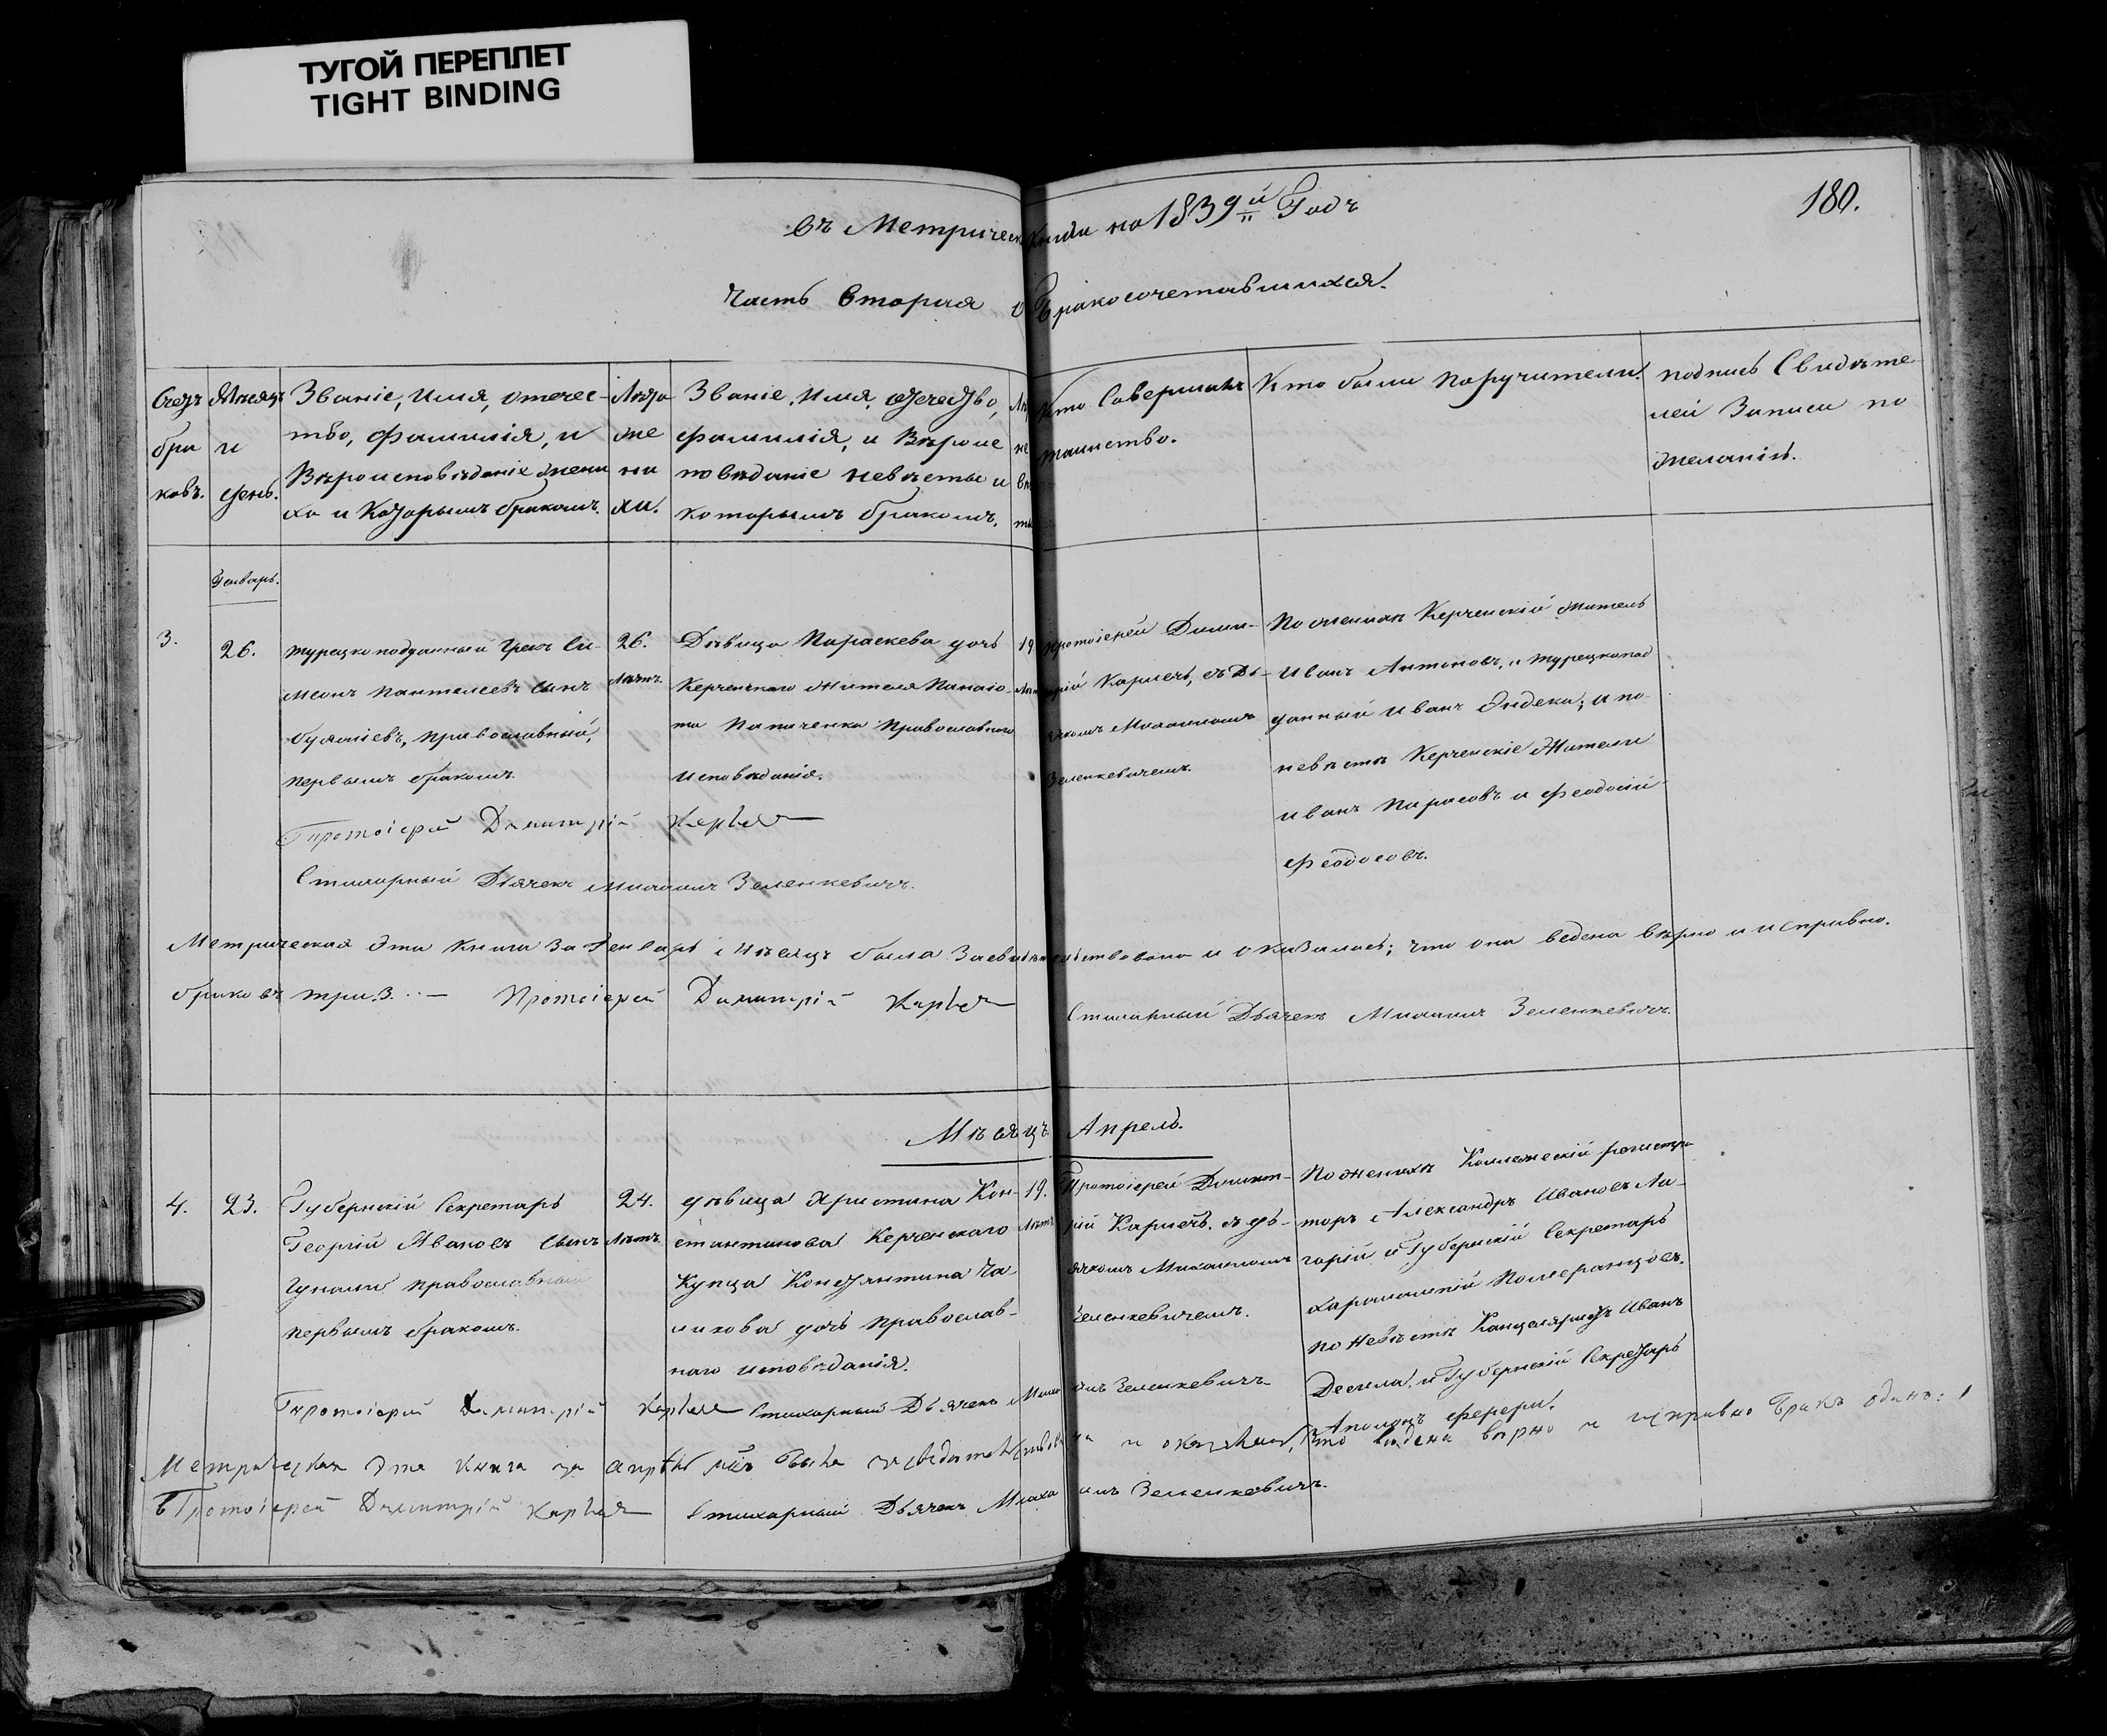 ТУГОЙ ПЕРЕПЛЕТ
TIGHT BINDING
180.
въ Метрическ Книги на 1839й Годъ
Часть Вторая о Бракосочетавшихся.
Счетъ браковъ.
Мѣсяцъ и день.
Званіе, Имя, отечес-
тво, фамилія, и
Вѣроисповѣданіе жени
ха и Которымъ бракомъ.
Лѣта
же
ни
ха.
Званіе, Имя, отечество,
фамилія, и Вѣроис
повѣданіе невѣсты и
которымъ бракомъ.
Лѣ
не
вѣ
ты
Кто Совершалъ
таинство.
Кто были поручители.
подпись Свидѣте
лей Записи по
желанію.
Январь.
3.
26.
турецкоподданный Грекъ Си-
меонъ Пантелеевъ Сынъ
православный,
первымъ бракомъ.
26.
Лѣтъ
Дѣвица Параскева дочь
Керченскаго Жителя Панаіо-
та Папаченка Православнаго
исповѣданія.
19
Лѣт
Протоіерей Дими-
трій Карпечь, съ Дь-
ячкомъ Михаиломъ
Зеленкевичемъ.
По женихѣ Керченскій житель
Иванъ Антоновъ, и турецкопод
данный Иванъ Яндеки; и по
невѣстѣ Керченскіе Жители
Иванъ Парасовъ и Феодосій
Феодосовъ.
Протоіерей Димитрій
Стихарный Дьячекъ Михаилъ Зеленкевичъ.
Метрическая эта книга за Январь Мѣсяцъ была Засвидѣтельствована и оказалось; что она ведена вѣрно и исправно.
браковъ три. 3. — Протоіерей Димитрій
Стихарный Дьячекъ Михаилъ Зеленкевичъ.
Мѣсяцъ Апрель.
4.
23.
Губернскій Секретарь
Георгій Ивановъ Сынъ
православный
первымъ бракомъ.
24.
Лѣтъ
дѣвица Христина Кон-
стантинова Керченскаго
Купца Константина Ча
ликова дочь православ-
наго исповѣданія.
19.
Лѣтъ
Протоіерей Димит-
рій Карпечь. съ дь-
ячкомъ Михаиломъ
Зеленкевичемъ.
По женихѣ Коллежскій регистра
торъ Александръ Ивановъ Ла-
горій и Губернскій Секретарь
Харлампій Померанцовъ.
по Невѣстѣ Канцеляристъ Иванъ
Десила, и Губернскій Секретарь
Аполонъ Ферери.
Протоіерей Димитрій Стихарный Дьячекъ Михаилъ Зеленкевичъ
Метрическая эта Книга за Апрѣль мцъ была засвидѣтельствована и оказалась, что ведена вѣрно и исправно Бракъ одинъ: 1
Протоіерей Димитрій Стихарный Дьячекъ Михаилъ Зеленкевичъ.